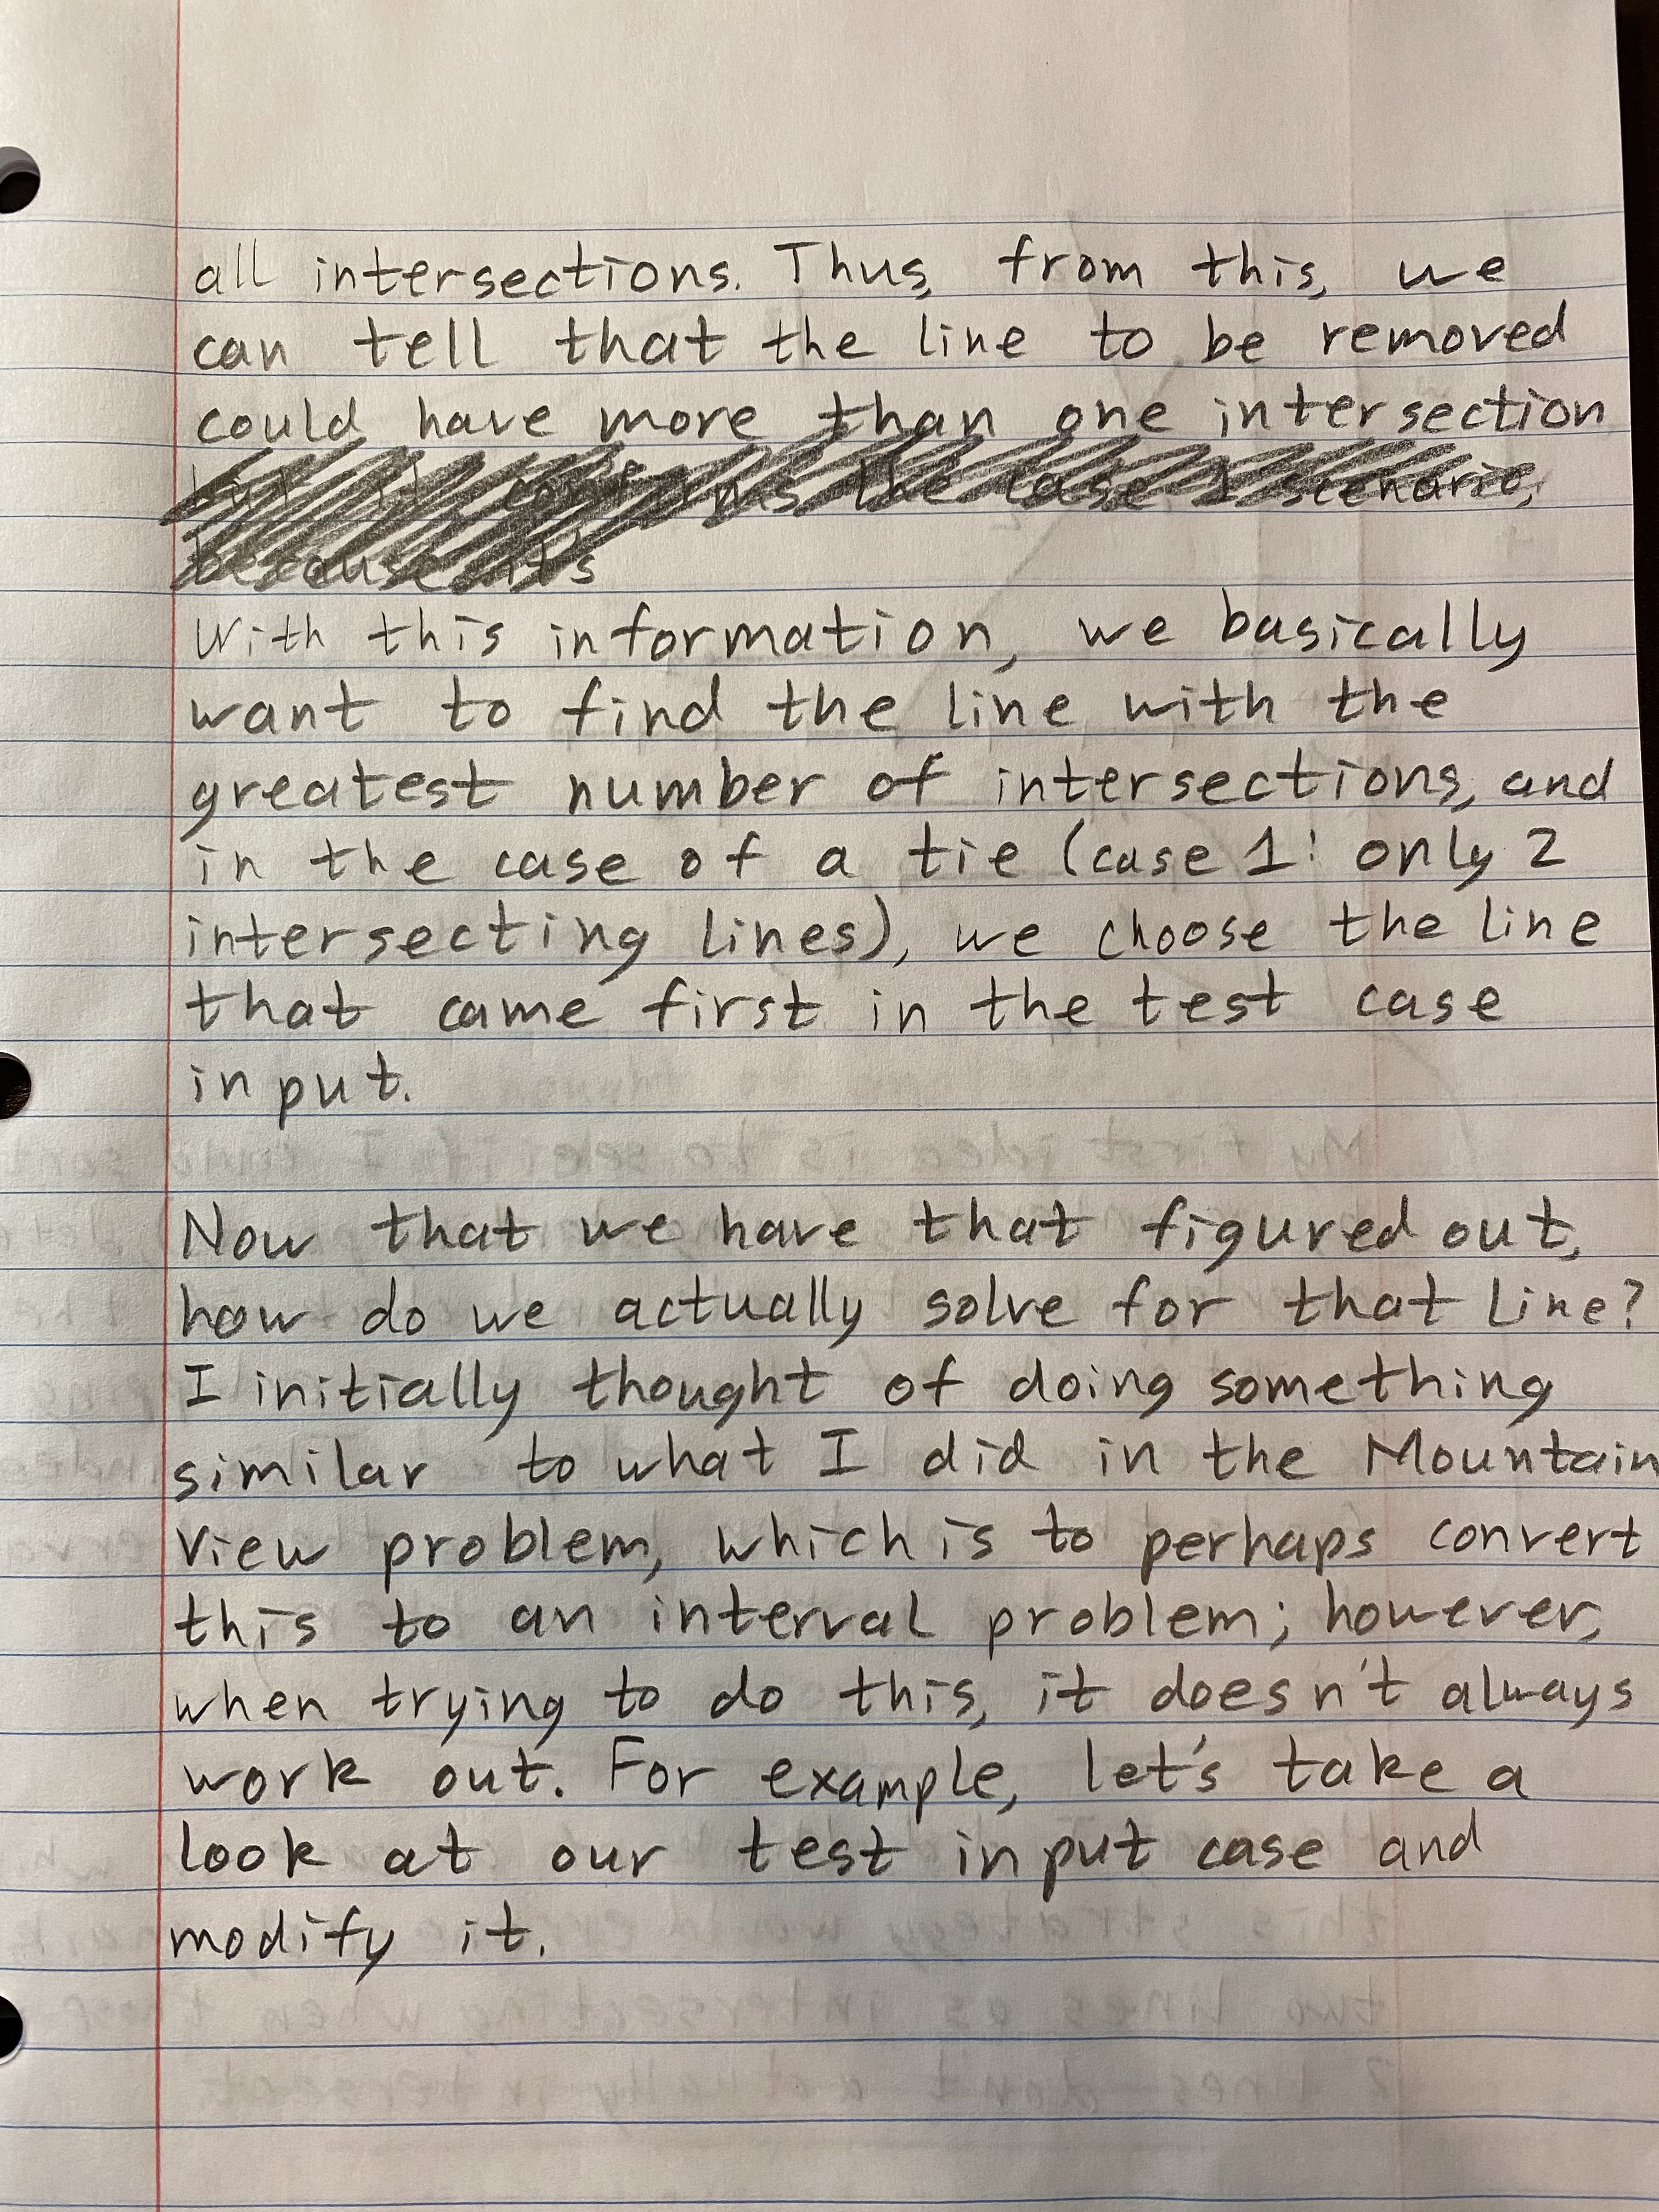 all intersections. Thus, from this, we
can tell that the line to be removed
could have more than one intersection
the case 1 scenario,
because it's
With this information, we basically
want to find the line with the
greatest number of intersections, and
in the case of a tie (case 1: only 2
intersecting lines), we choose the line
that came first in the test case
input.
My first idea is to see if I could sort
Now that we have that figured out,
how do we actually solve for that line?
I initially thought of doing something
similar to what I did in the Mountain
View problem, which is to perhaps convert
this to an interval problem; however,
when trying to do this, it doesn't always
work out. For example, let's take a
look at our test input case and
modify it.
this strategy would
two lines as intersecting when those
2 lines don't actually intersect.